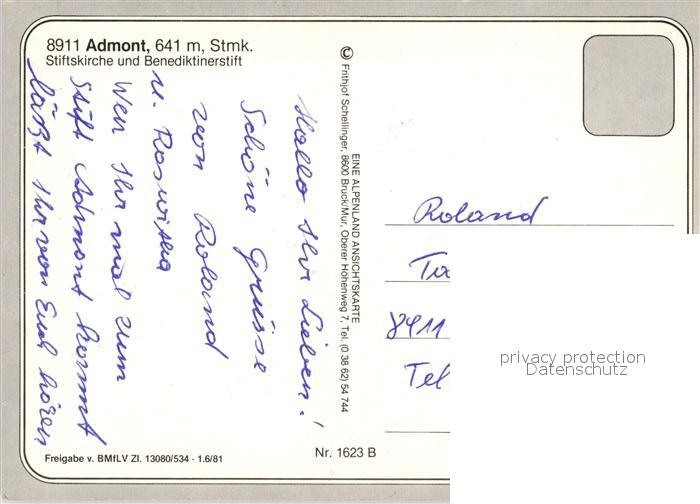 8911 Admont, 641 m, Stmk.
Stiftskirche und Benediktinerstift
Hallo Ihr Lieben!
Schöne Grüsse
von Roland
u. Roswitha
Wen Ihr mal zum
Stift Admont kommt
laßt Ihr von Euch hören
© Frithjof Schellinger, 8600 Bruck/Mur, Oberer Höhenweg 7, Tel. (0 38 62) 54 744
EINE ALPENLAND ANSICHTSKARTE
Roland
8911
Tel
privacy protection
Datenschutz
Freigabe v. BMfLV Zl. 13080/534 - 1.6/81
Nr. 1623 B